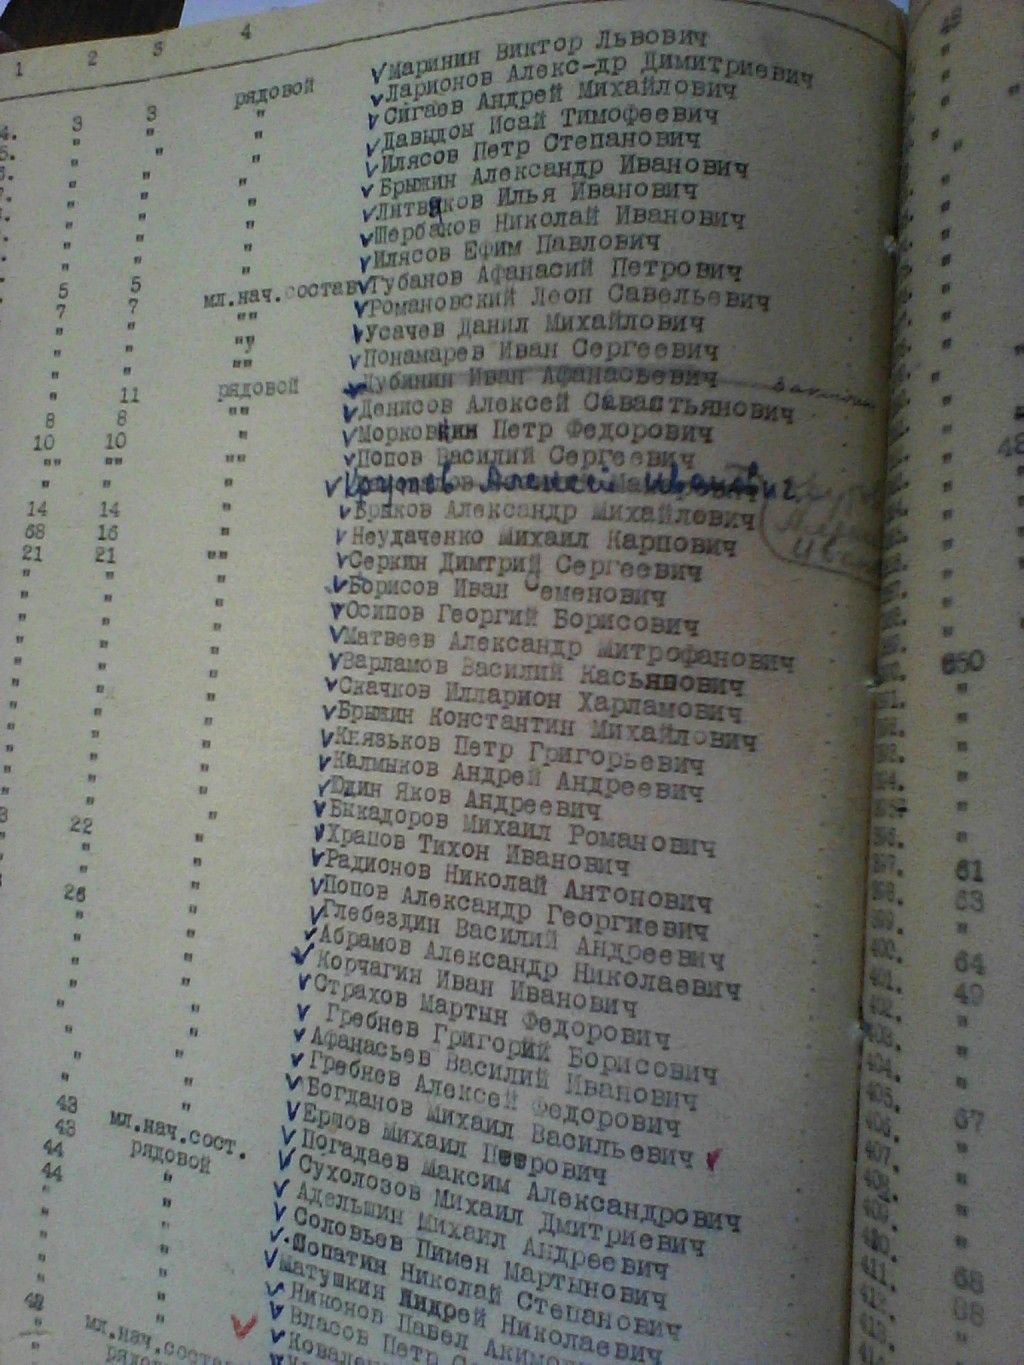 1 2 3 4
4. 3 3 рядовой Маринин Виктор Львович
5. " " " Ларионов Алекс-др Димитриевич
" " " Сигаев Андрей Михайлович
" " " Давыдон Исай Тимофеевич
" " " Илясов Петр Степанович
" " " Брыжин Александр Иванович
" " " Литвяков Илья Иванович
" " " Щербаков Николай Иванович
" " " Илясов Ефим Павлович
5 5 мл.нач.состав Губанов Афанасий Петрович
7 7 "" Романовский Леон Савельевич
" " "у Усачев Данил Михайлович
" " "" Понамарев Иван Сергеевич
" 11 рядовой Дубинин Иван Афанасьевич
8 8 "" Денисов Алексей Савастьянович
10 10 " Морковкин Петр Федорович
"" "" "" Попов Василий Сергеевич
" " Крутов Алексей Иванович
14 14 " Бряков Александр Михайлович
68 16 " Неудаченко Михаил Карпович
21 21 "" Серкин Димитрий Сергеевич
" " " Борисов Иван Семенович
" " " Осипов Георгий Борисович
" " " Матвеев Александр Митрофанович
" " " Варламов Василий Касьянович
" " " Скачков Илларион Харламович
" " " Брыжин Константин Михайлович
" " " Князьков Петр Григорьевич
" " " Калмыков Андрей Андреевич
" " " Юдин Яков Андреевич
22 " Быкадоров Михаил Романович
" " Храпов Тихон Иванович
" " Радионов Николай Антонович
26 " Попов Александр Георгиевич
" " Глебездин Василий Андреевич
" " Абрамов Александр Николаевич
" " Корчагин Иван Иванович
" " Страхов Мартын Федорович
" " Гребнев Григорий Борисович
" " Афанасьев Василий Иванович
" " Гребнев Алексей Федорович
43 мл.нач.сост. Богданов Михаил Васильевич
43 рядовой Ершов Михаил Петрович
44 " Погадаев Максим Александрович
44 " Сухолозов Михаил Дмитриевич
" " Адельшин Михаил Андреевич
" " Соловьев Пимен Мартынович
" " Лопатин Николай Степанович
" " Матушкин Андрей Николаевич
" " Никонов Павел
мл.нач.состав Власов Петр
650
397. 61
398. 63
399.
400. 64
401. 49
402.
403.
404.
405.
406. 67
407.
408.
409.
410.
411. 68
412. 68